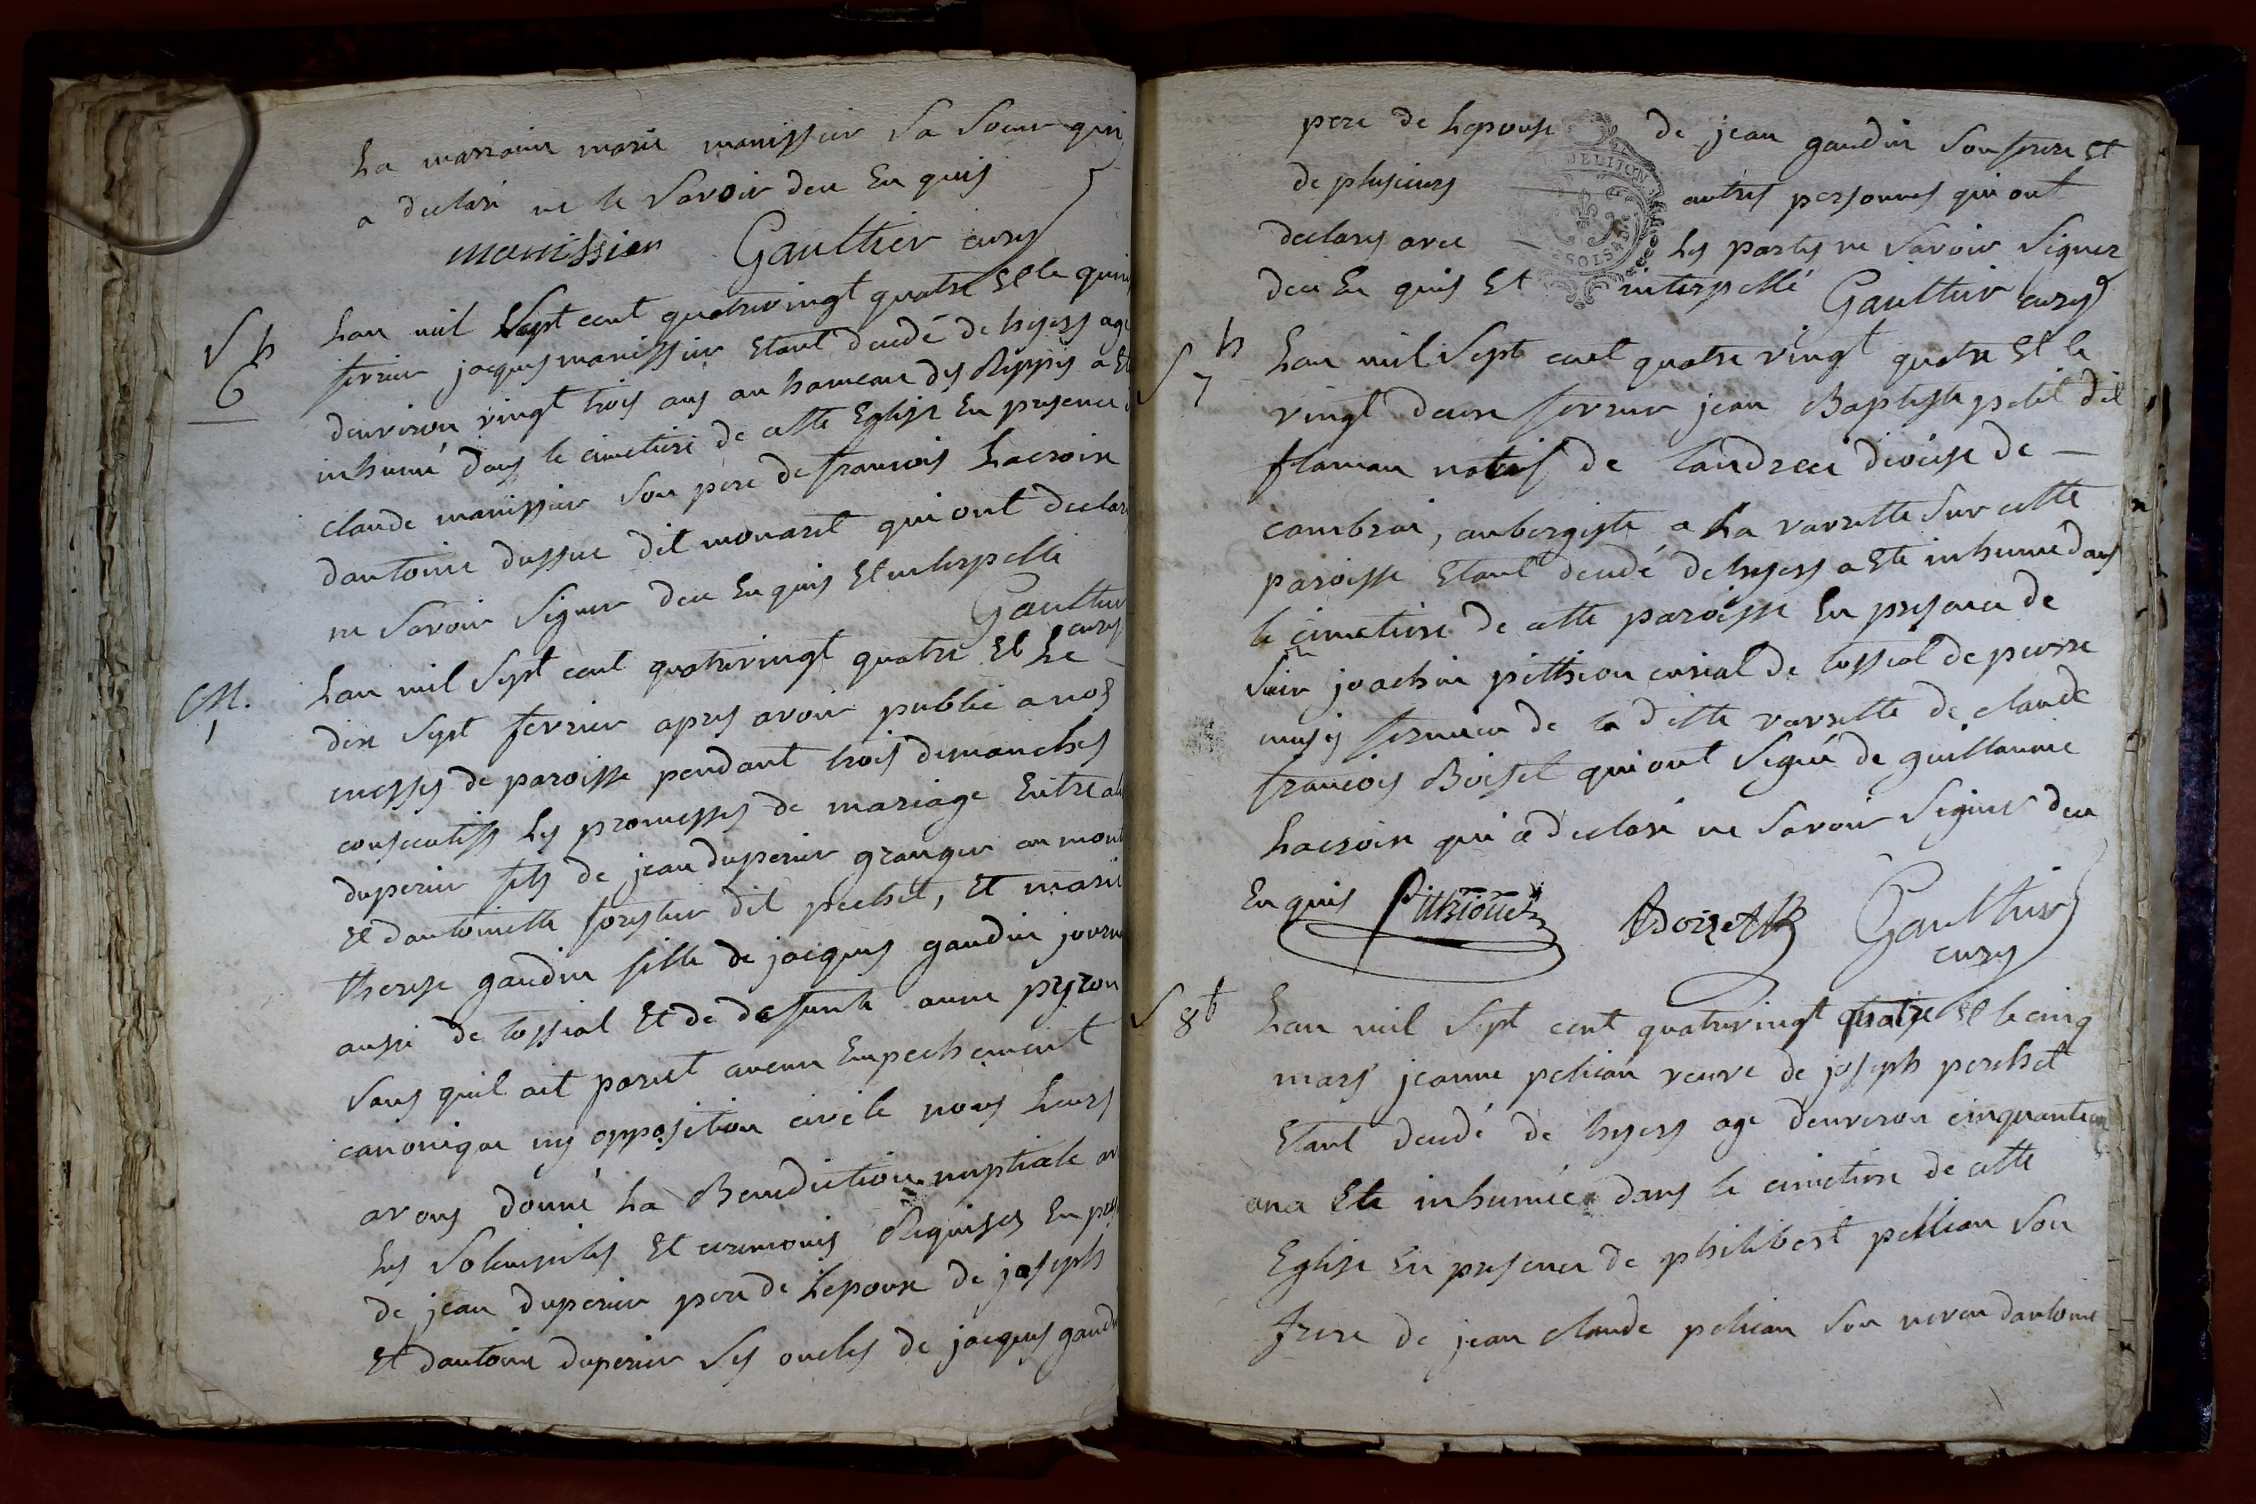 La marraine marie manissier Sa Soeur qui
a declaré ne le Savoir deu En quis
manissier Gaulthier curé
S h
6
Lan mil Sept cent quatrevingt quatre Et le
fevrier jacques manissier Etant decedé de hyers agé
denviron vingt trois ans au hameau des Rippes a
inhumé dans le cimetiere de cette Eglise En presence
claude manissier Son pere de francois Lacroix
dantoine dussuc dit monaret qui ont declaré
ne Savoir Signer deu En quis Et interpellé
Gaulthier
curé
M.
1
Lan mil Sept cent quatrevingt quatre Et Le
dix Sept fevrier apres avoir publié a nos
messes de paroisse pendant trois dimanches
consecutifs Les promesses de mariage Entre
duperier fils de jean duperier granger au
Et dantoinette forestier dit pechet, Et marie
therese gaudin fille de jacques gaudin
aussi de cossial Et de defunte anne peyron
Sans quil ait parut aucun Empechement
canonique ny opposition civile nous Leurs
avons donné La Benediction nuptiale
Les Solemnités Et ceremonies Requises En
de jean duperier pere de Lepoux de joseph
Et dantoine duperier Ses oncles de jacques
pere de Lepouse de jean gaudin Son frere Et
de plusieurs autres personnes qui ont
declarés avec les parties ne Savoir Signer
deu En quis Et interpellé Gaulthier curé
S h
7
Lan mil Sept cent quatre vingt quatre Et le
vingt deux fevrier jean Baptiste petit dit
flaman natif de Landrecie diocese de
cambrai, aubergiste a La varsette Sur cette
paroisse Etant decedé de hyers a Eté inhumé dans
le cimetiere de cette paroisse En presence de
Sieur joachin pitthiou curial de cossial de pierre
fermier de la ditte varsette de claude
francois Boiset qui ont Signé de guillaume
Lacroix qui a declaré ne Savoir Signer deu
En quis Pitthiou Boizet Gaulthier
curé
S t
8
Lan mil Sept cent quatrevingt quatre Et le cinq
mars jeanne pelican veuve de joseph perchet
Etant decedé de hyers age denviron cinquante
ana Ete inhumée dans le cimetiere de cette
Eglise En presence de philibert pellican Son
frere de jean claude pelican Son neveu dantoine